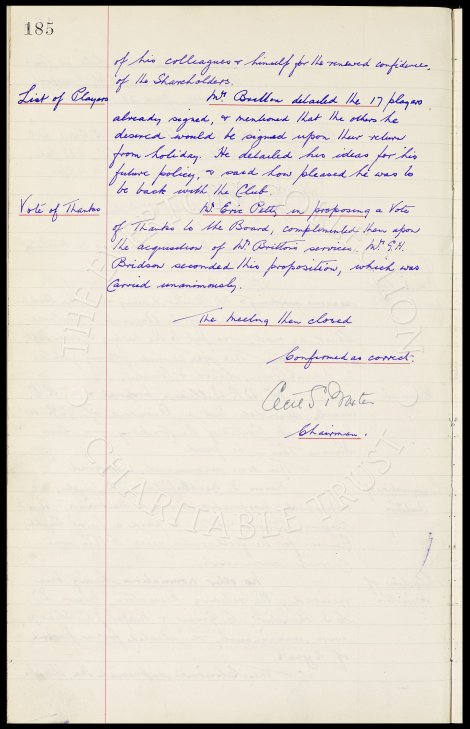 185
of his colleagues & himself for the renewed confidence,
of the Shareholders.
List of Players
Mr. Britton detailed the 17 players
already signed, & mentioned that the others he
desired would be signed upon their return
from holiday. He detailed his ideas for his
future policy, & said how pleased he was to
be back with the Club.
Vote of Thanks
Mr. Eric Petty in proposing a Vote
of Thanks to the Board, complimented them upon
the acquisition of Mr. Britton's services. Mr. G.H.
Bridson seconded this proposition, which was
Carried unanimously.
The Meeting then closed
Confirmed as correct:
Cecil S.
Chairman.
THE
CHARITABLE TRUST